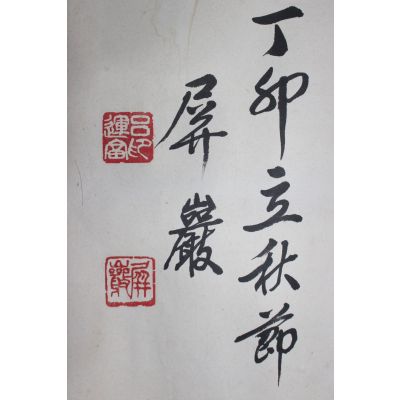 丁卯立秋節
屏巖
呂印運
屏巖